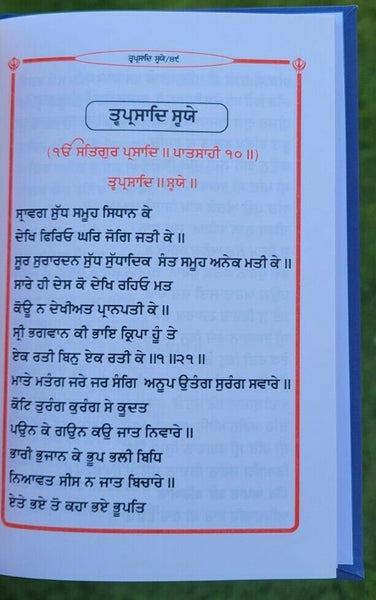 ਤ੍ਵਪ੍ਰਸਾਦਿ ਸ੍ਵਯੇ/੪੯
ਤ੍ਵਪ੍ਰਸਾਦਿ ਸ੍ਵਯੇ
(ੴ ਸਤਿਗੁਰ ਪ੍ਰਸਾਦਿ॥ ਪਾਤਸਾਹੀ ੧੦॥)
ਤ੍ਵਪ੍ਰਸਾਦਿ॥ ਸ੍ਵਯੇ॥
ਸ੍ਰਾਵਗ ਸੁੱਧ ਸਮੂਹ ਸਿਧਾਨ ਕੇ
ਦੇਖਿ ਫਿਰਿਓ ਘਰਿ ਜੋਗਿ ਜਤੀ ਕੇ॥
ਸੂਰ ਸੁਰਾਰਦਨ ਸੁੱਧ ਸੁੱਧਾਦਿਕ ਸੰਤ ਸਮੂਹ ਅਨੇਕ ਮਤੀ ਕੇ॥
ਸਾਰੇ ਹੀ ਦੇਸ ਕੋ ਦੇਖਿ ਰਹਿਓ ਮਤ
ਕੋਊ ਨ ਦੇਖੀਅਤ ਪ੍ਰਾਨਪਤੀ ਕੇ॥
ਸ੍ਰੀ ਭਗਵਾਨ ਕੀ ਭਾਇ ਕ੍ਰਿਪਾ ਹੂੰ ਤੇ
ਏਕ ਰਤੀ ਬਿਨੁ ਏਕ ਰਤੀ ਕੇ॥੧॥੨੧॥
ਮਾਤੇ ਮਤੰਗ ਜਰੇ ਜਰ ਸੰਗਿ ਅਨੂਪ ਉਤੰਗ ਸੁਰੰਗ ਸਵਾਰੇ॥
ਕੋਟਿ ਤੁਰੰਗ ਕੁਰੰਗ ਸੇ ਕੂਦਤ
ਪਉਨ ਕੇ ਗਉਨ ਕਉ ਜਾਤ ਨਿਵਾਰੇ॥
ਭਾਰੀ ਭੁਜਾਨ ਕੇ ਭੂਪ ਭਲੀ ਬਿਧਿ
ਨਿਆਵਤ ਸੀਸ ਨ ਜਾਤ ਬਿਚਾਰੇ॥
ਏਤੇ ਭਏ ਤੋ ਕਹਾ ਭਏ ਭੂਪਤਿ